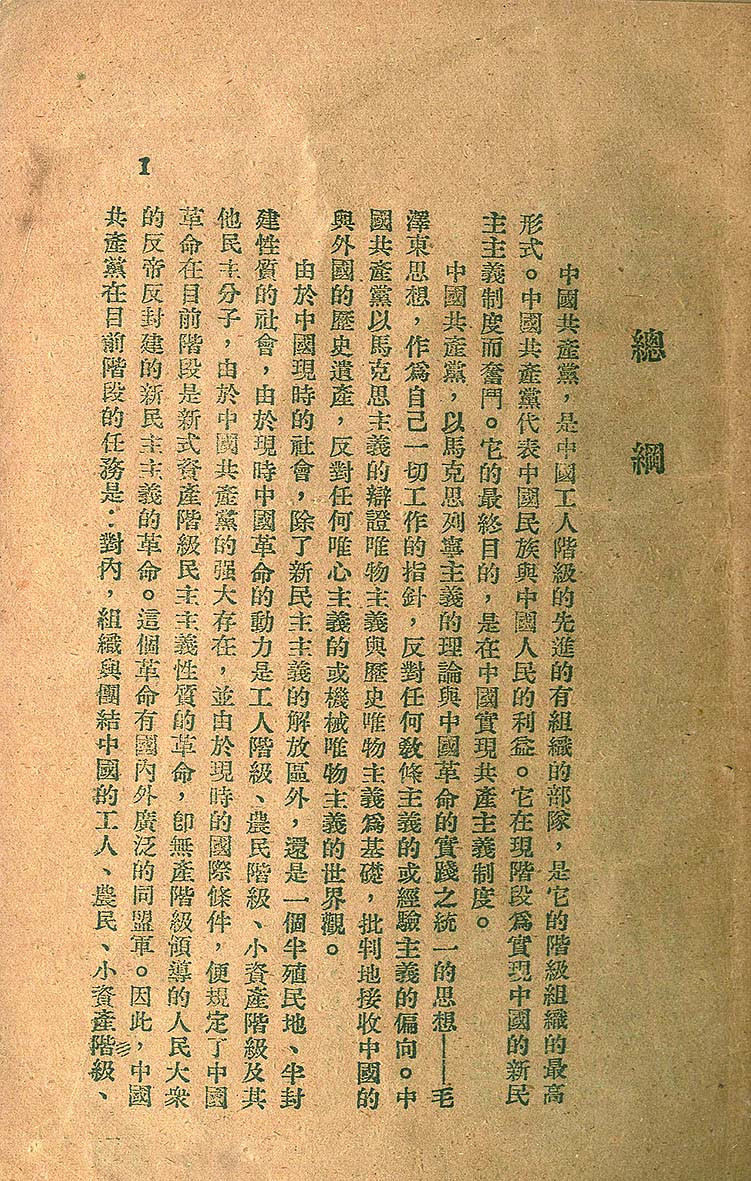 總綱
中國共產黨，是中國工人階級的先進的有組織的部隊，是它的階級組織的最高
形式。中國共產黨代表中國民族與中國人民的利益。它在現階段爲實現中國的新民
主主義制度而奮鬥。它的最終目的，是在中國實現共產主義制度。
中國共產黨，以馬克思列寧主義的理論與中國革命的實踐之統一的思想——毛
澤東思想，作爲自己一切工作的指針，反對任何敎條主義的或經驗主義的偏向。中
國共產黨以馬克思主義的辯證唯物主義與歷史唯物主義爲基礎，批判地接收中國的
與外國的歷史遺產，反對任何唯心主義的或機械唯物主義的世界觀。
由於中國現時的社會，除了新民主主義的解放區外，還是一個半殖民地、半封
建性質的社會，由於現時中國革命的動力是工人階級、農民階級、小資產階級及其
他民主分子，由於中國共產黨的强大存在，並由於現時的國際條件，便規定了中國
革命在目前階段是新式資產階級民主主義性質的革命，卽無產階級領導的人民大衆
的反帝反封建的新民主主義的革命。這個革命有國內外廣泛的同盟軍。因此，中國
共產黨在目前階段的任務是：對內，組織與團結中國的工人、農民、小資產階級、
1